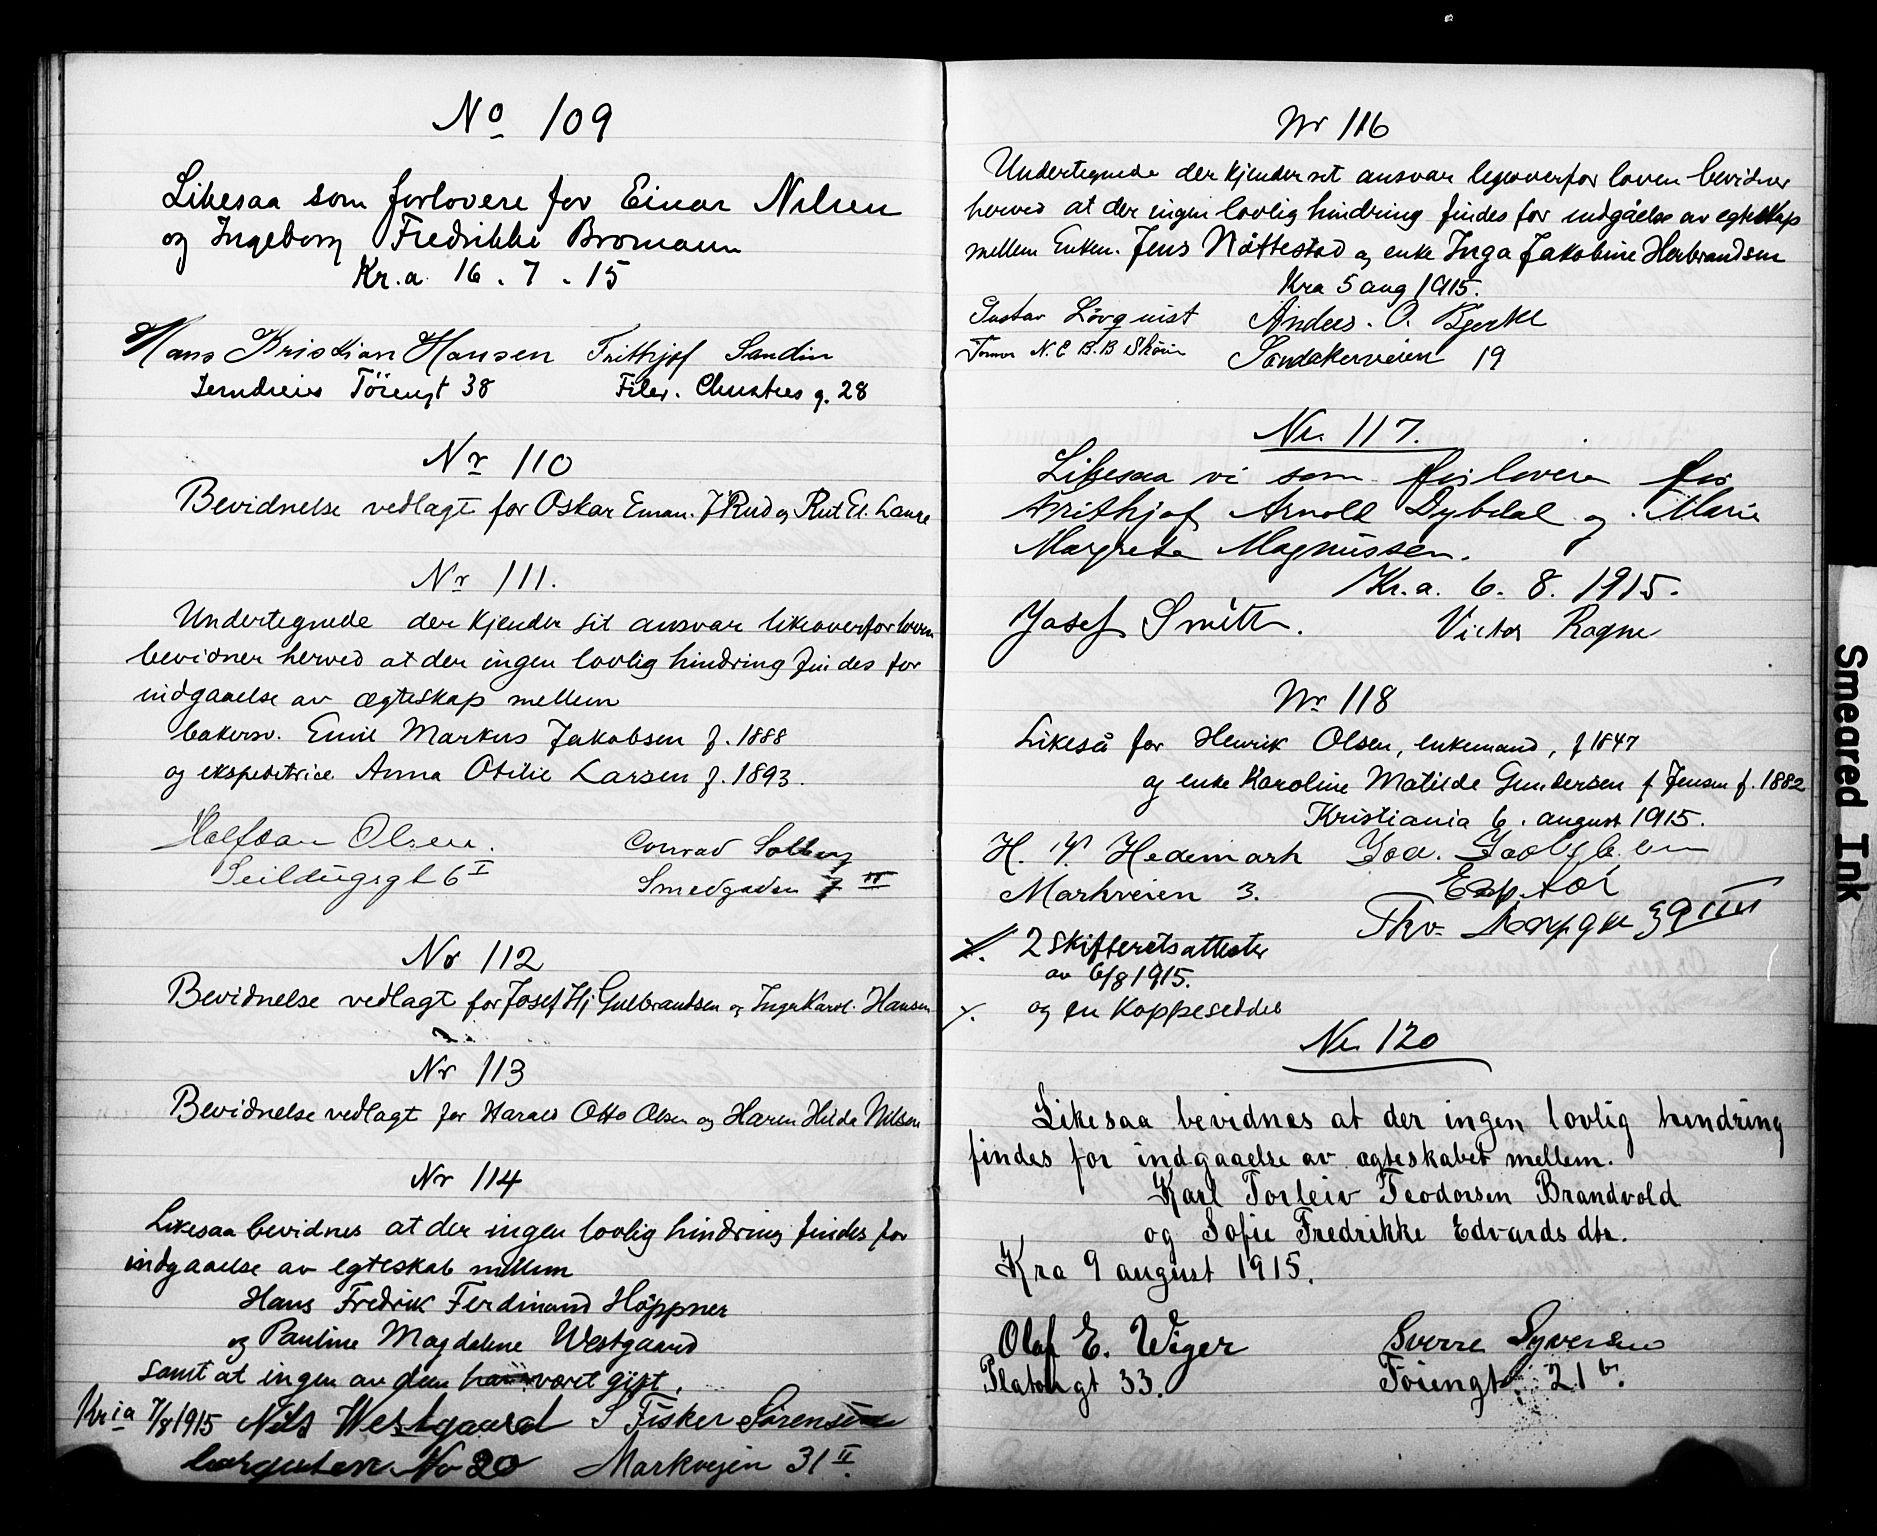 No 109
Likesaa som forlovere for Einar Nilsen
og Ingeborg Fredrikke Bromann
Kr.a 16 . 7 . 15
Hans Kristian Hansen Frithjof Sandin
Jerndreier Töiengt 38 Filer. Christies g. 28
Nr 110
Bevidnelse vedlagt for Oskar Eman. J Rud og Rut El. Laure
Nr 111.
Undertegnede der kjender sit ansvar likeoverfor loven
bevidner herved at der ingen lovlig hindring findes for
indgaaelse av ægteskap mellem
bakersv. Emil Markus Jakobsen f. 1888
og ekspeditrice Anna Otilie Larsen f. 1893.
Halfdan Olsen. Conrad Solberg
Seildugsgt 6 I Smedgaden 7 II
Nr 112
Bevidnelse vedlagt for Josef Hj Gulbrandsen og Inga Karol. Hansen
Nr 113
Bevidnelse vedlagt for Harald Otto Olsen og Haren Hilda Nilsen
Nr 114
Likesaa bevidnes at der ingen lovlig hindring findes for
indgaaelse av egteskab mellem
Hans Fredrik Ferdinand Höppner
og Pauline Magdalene Westgaard
samt at ingen av dem har været gift.
Kria 7/8 1915 Nils Westgaard S Fisker Sörensen
No 20 Markvejen 31 II.
Nr 116
Undertegnede der kjender sit ansvar ligeoverfor loven bevidner
herved at der ingen lovlig hindring findes for indgåelse av egteskap
mellem Enkem. Jens Nöttestad og enke Inga Jakobine Herbrandsen
Kra 5 aug 1915.
Gustav Lövquist Anders. O. Bjerke
N. C B. B Sandakerveien 19
Nr. 117.
Likesaa vi som forlovere for
Frithjof Arnold Dybdal og Marie
Margrete Magnussen.
Kr.a. 6. 8. 1915.
Josef Smitt. Victor Ragne
Nr 118
Likeså for Henrik Olsen, enkemand, f 1847
og enke Karoline Matilde Gundersen f. Jensen f. 1882
Kristiania 6. august 1915.
H. Hedemark
Markveien 3.
Thv. 39 IIII
2 skifteretsattester
av 6/8 1915.
og en Koppeseddel
Nr. 120
Likesaa bevidnes at der ingen lovlig hindring
findes for indgaaelse av ægteskabet mellem.
Karl Torleiv Teodorsen Brandvold
og Sofie Fredrikke Edvards dtr.
Kra 9 august 1915.
Olaf E. Wiger Sverre Syversen
Platousgt 33. Töiengt. 21 b.
Smeared Ink